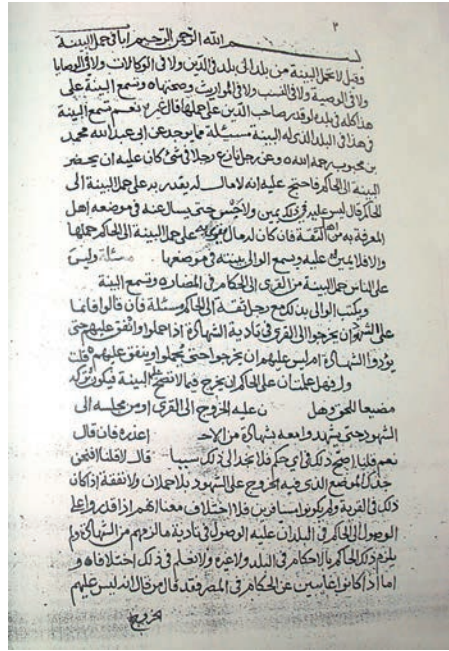 ٣
بسم الله الرحمن الرحيم باب في حمل البينة
وقيل لا تحمل البينة من بلد الى بلد في الدين ولا في الوكالات ولا في الوصايا
ولا في الوصية ولا في النسب ولا في المواريث وصحتها ه وتسمع البينة على
هذا كله في بلده لو قدر صاحب الدين على حملها قال غيره نعم تسمع البينة
في هذا في البلد الذي له البينة مسئلة مما يوجد عن ابي عبد الله محمد
بن محبوب رحمه الله ه وعن رجل نازع رجلا في شئ كان عليه ان يحضر
البينة الى الحاكم فاحتج عليه انه لا مال له يقدر به على حمل البينة الى
الحاكم قال ليس عليه في ذلك يمين ولا حبس حتى يسال عنه في موضعه اهل
المعرفة به من اهل الثقة فان كان له مال على حمل البينة الى الحاكم حملها
والا فلا يمين عليه وتسمع الوالي بينته في موضعها مسئلة وليس
على الناس حمل البينة من القرى الى الحكام في المضار ه وتسمع البينة
ويكتب الوالي بذلك مع رجل ثقة الى الحاكم مسئلة فان قالوا فانما
على الشهود ان يخرجوا الى القرى في تادية الشهادة اذا حملوا وانفق عليهم حتى
يؤدوا الشهادة ام ليس عليهم ان يخرجوا حتى يحملوا وينفق عليهم ه قلت
وان فعل علمت ان على الحاكم ان يخرج فيما لا تصح البينة فيكون تركه
مضيعا للحق وهل ن عليه الخروج الى القرى او من مجلسه الى
الشهود حتى يشهدوا معه بشهادة من الاحـ اعذره فان قال
نعم قلنا اصح ذلك في اي حكم فلا نجد الى ذلك سبيا قال لا قلنا افيصح
ذلك الموضع الذي فيه الخروج على الشهود بلا حملان ولا نفقة اذا كان
ذلك في القرية ولم يكونوا مسافرين فلا اختلاف معنا انهم اذا قدروا على
الوصول الى الحاكم في البلد ان عليه الوصول في تادية ما لزمهم من الشهادة ولم
يلزم ذلك الحاكم بالاحكام في البلد ولا غيره ولا نعلم في ذلك اختلافا ه و
اما اذا كانوا غائبين عن الحكام في المصر فقد قال من قال انه ليس عليهم
خروج